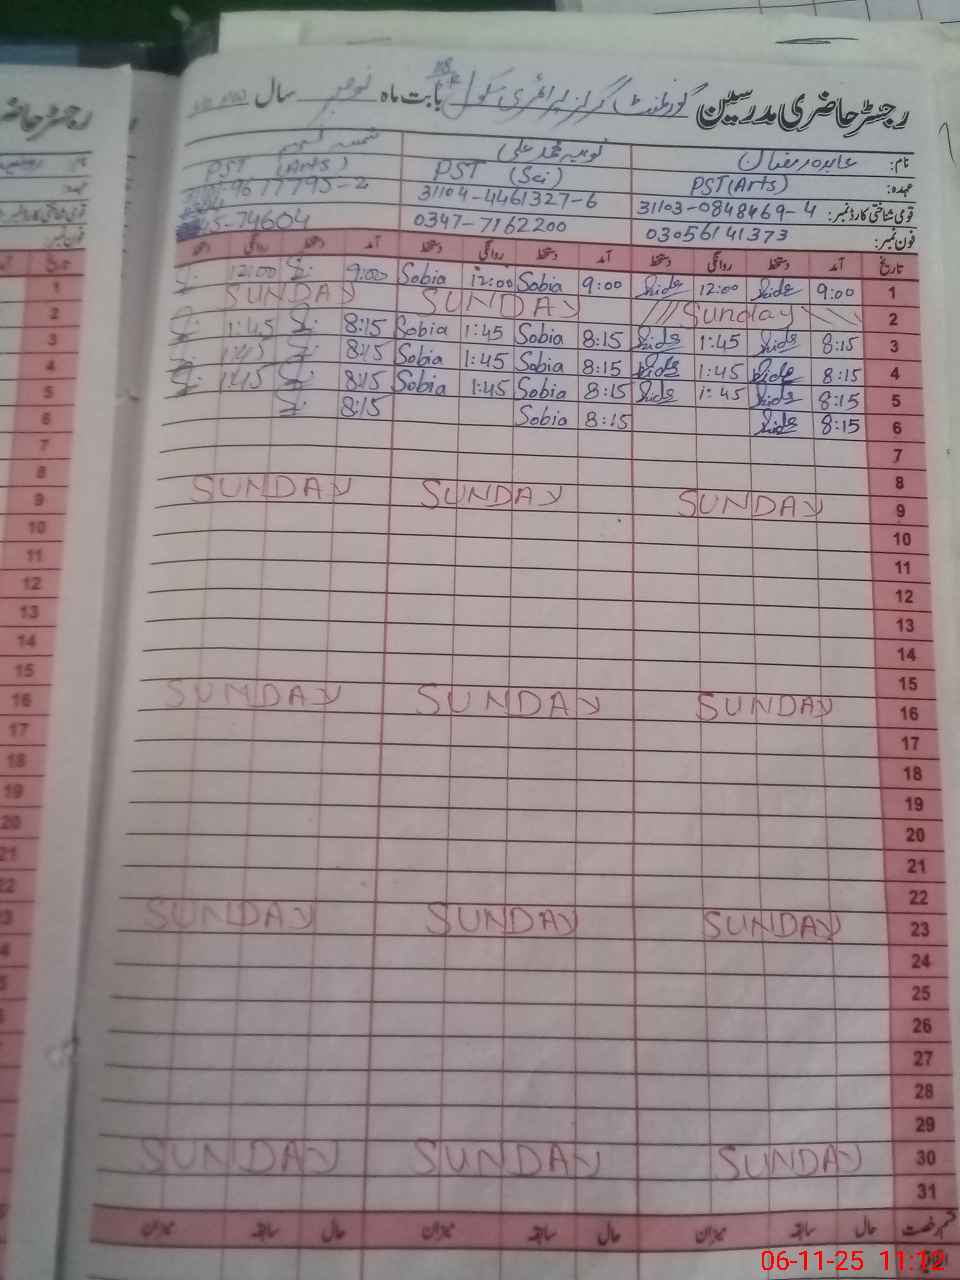 رجسٹر حاضری مدرسین گورنمنٹ گرلز پرائمری سکول بابت ماہ نومبر سال
نام: عابدہ رمضان ثوبیہ محمد علی
عہدہ: PST (Arts) PST (Sci) PST (Arts)
قومی شناختی کارڈ نمبر: 31103-0848469-4 31104-4461327-6 9677795-2
فون نمبر: 03056141373 0347-7162200 74604
تاریخ آمد دستخط روانگی دستخط آمد دستخط روانگی دستخط آمد دستخط روانگی دستخط
1 9:00 12:00 9:00 Sobia 12:00 Sobia 9:00 12:00
2 Sunday SUNDAY SUNDAY
3 8:15 1:45 8:15 Sobia 1:45 Sobia 8:15 1:45
4 8:15 1:45 8:15 Sobia 1:45 Sobia 8:15 1:45
5 8:15 1:45 8:15 Sobia 1:45 Sobia 8:15 1:45
6 8:15 8:15 Sobia 8:15
7
8
9 SUNDAY SUNDAY SUNDAY
10
11
12
13
14
15
16 SUNDAY SUNDAY SUNDAY
17
18
19
20
21
22
23 SUNDAY SUNDAY SUNDAY
24
25
26
27
28
29
30 SUNDAY SUNDAY SUNDAY
31
قسم رخصت حال سابقہ میزان حال سابقہ میزان حال سابقہ میزان
06-11-25 11:12